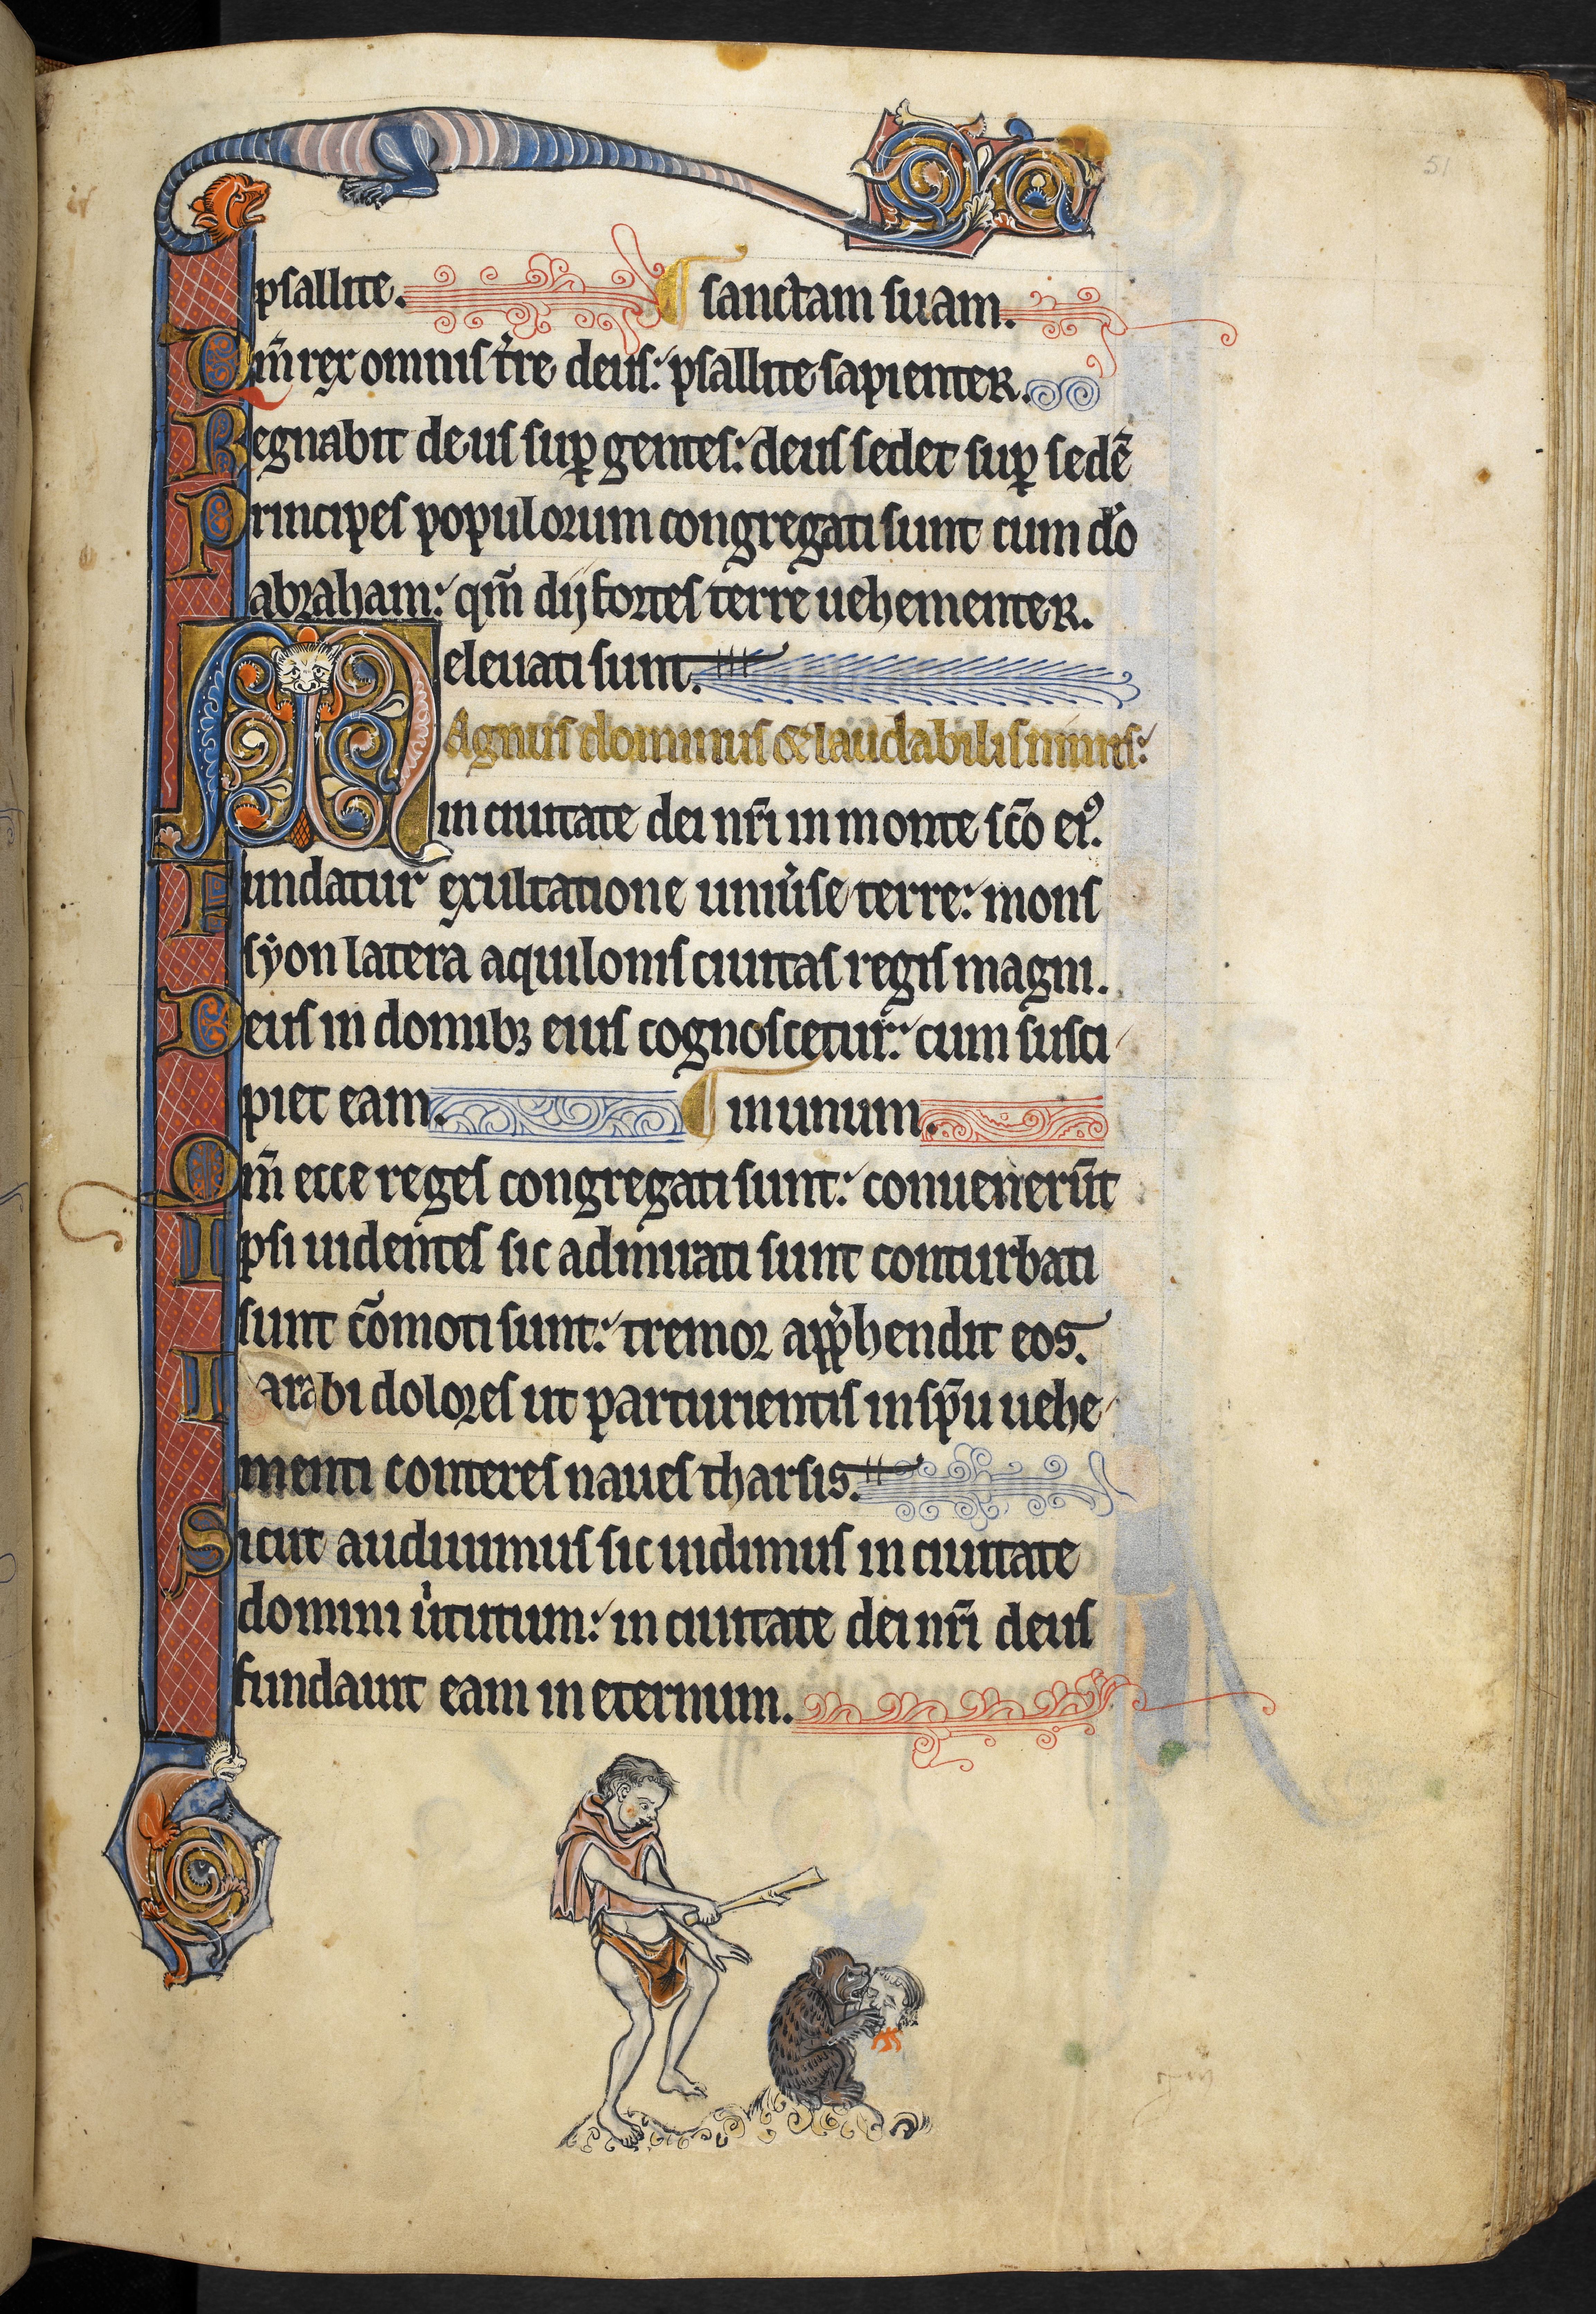 51
psallite. sanctam suam.
Qm̄ rex omnis t̉re deus: psallite sapienter.
Regnabit deus suꝑ gentes: deus sedet suꝑ sedē
Principes populorum congregati sunt cum do̅
abraham: qm̄ dij fortes terre uehementer.
eleuati sunt.
MAgnus dominus & laudabilis nimis:
in ciuitate dei nr̄i in monte sc̄o eiꝰ.
Fundatur exultatione uniu̓se terre: mons
syon latera aquilonis ciuitas regis magni.
Deus in domibꝫ eius cognoscetur: cum susci
piet eam. in unum.
Qm̄ ecce reges congregati sunt: conuenerūt
Ipsi uidentes sic admirati sunt conturbati
sunt cōmoti sunt: tremor app̓hendit eos.
I arabi dolores ut parturientis in sp̄u uehe
menti conteres naues tharsis.
Sicut audiuimus sic uidimus in ciuitate
domini u̓tutum: in ciuitate dei nr̄i deus
fundauit eam in eternum.